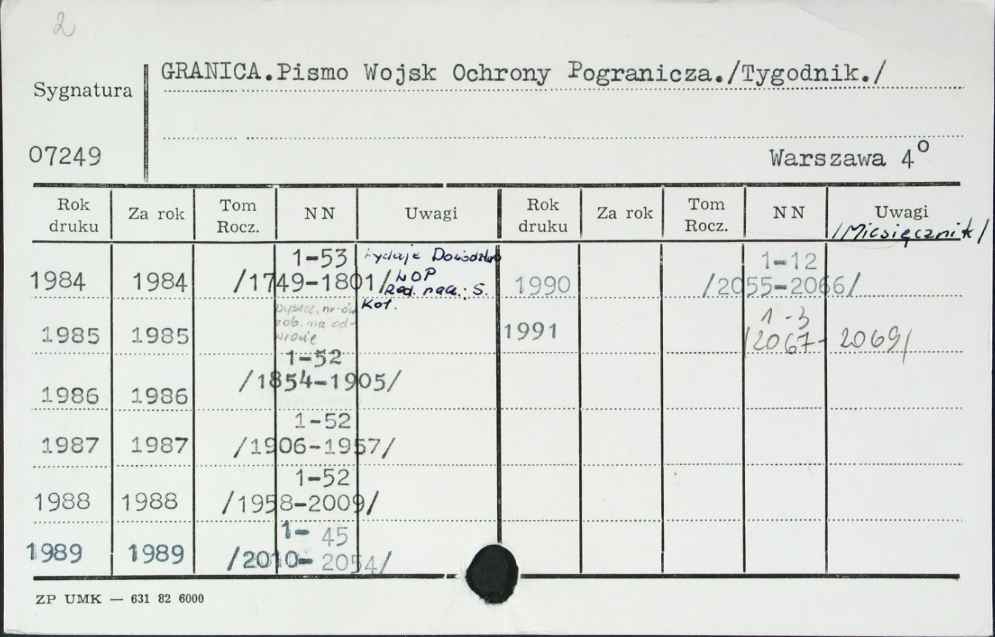 2
GRANICA.Pismo Wojsk Ochrony Pogranicza./Tygodnik./
Sygnatura
07249
Warszawa 4°
Rok druku Za rok Tom Rocz. NN Uwagi Rok druku Za rok Tom Rocz. NN Uwagi
/Miesięcznik/
1984 1984 1-53 /1749-1801/
wydaje Dowództwo
WOP
Red. nacz.: S.
Kot.
1990 1-12 /2055-2066/
1985 1985
nr-ów
rob. na od-
wrocie
1991 1-3 /2067-2069/
1986 1986 1-52 /1854-1905/
1987 1987 1-52 /1906-1957/
1988 1988 1-52 /1958-2009/
1989 1989 1-45 /2010-2054/
ZP UMK — 631 82 6000